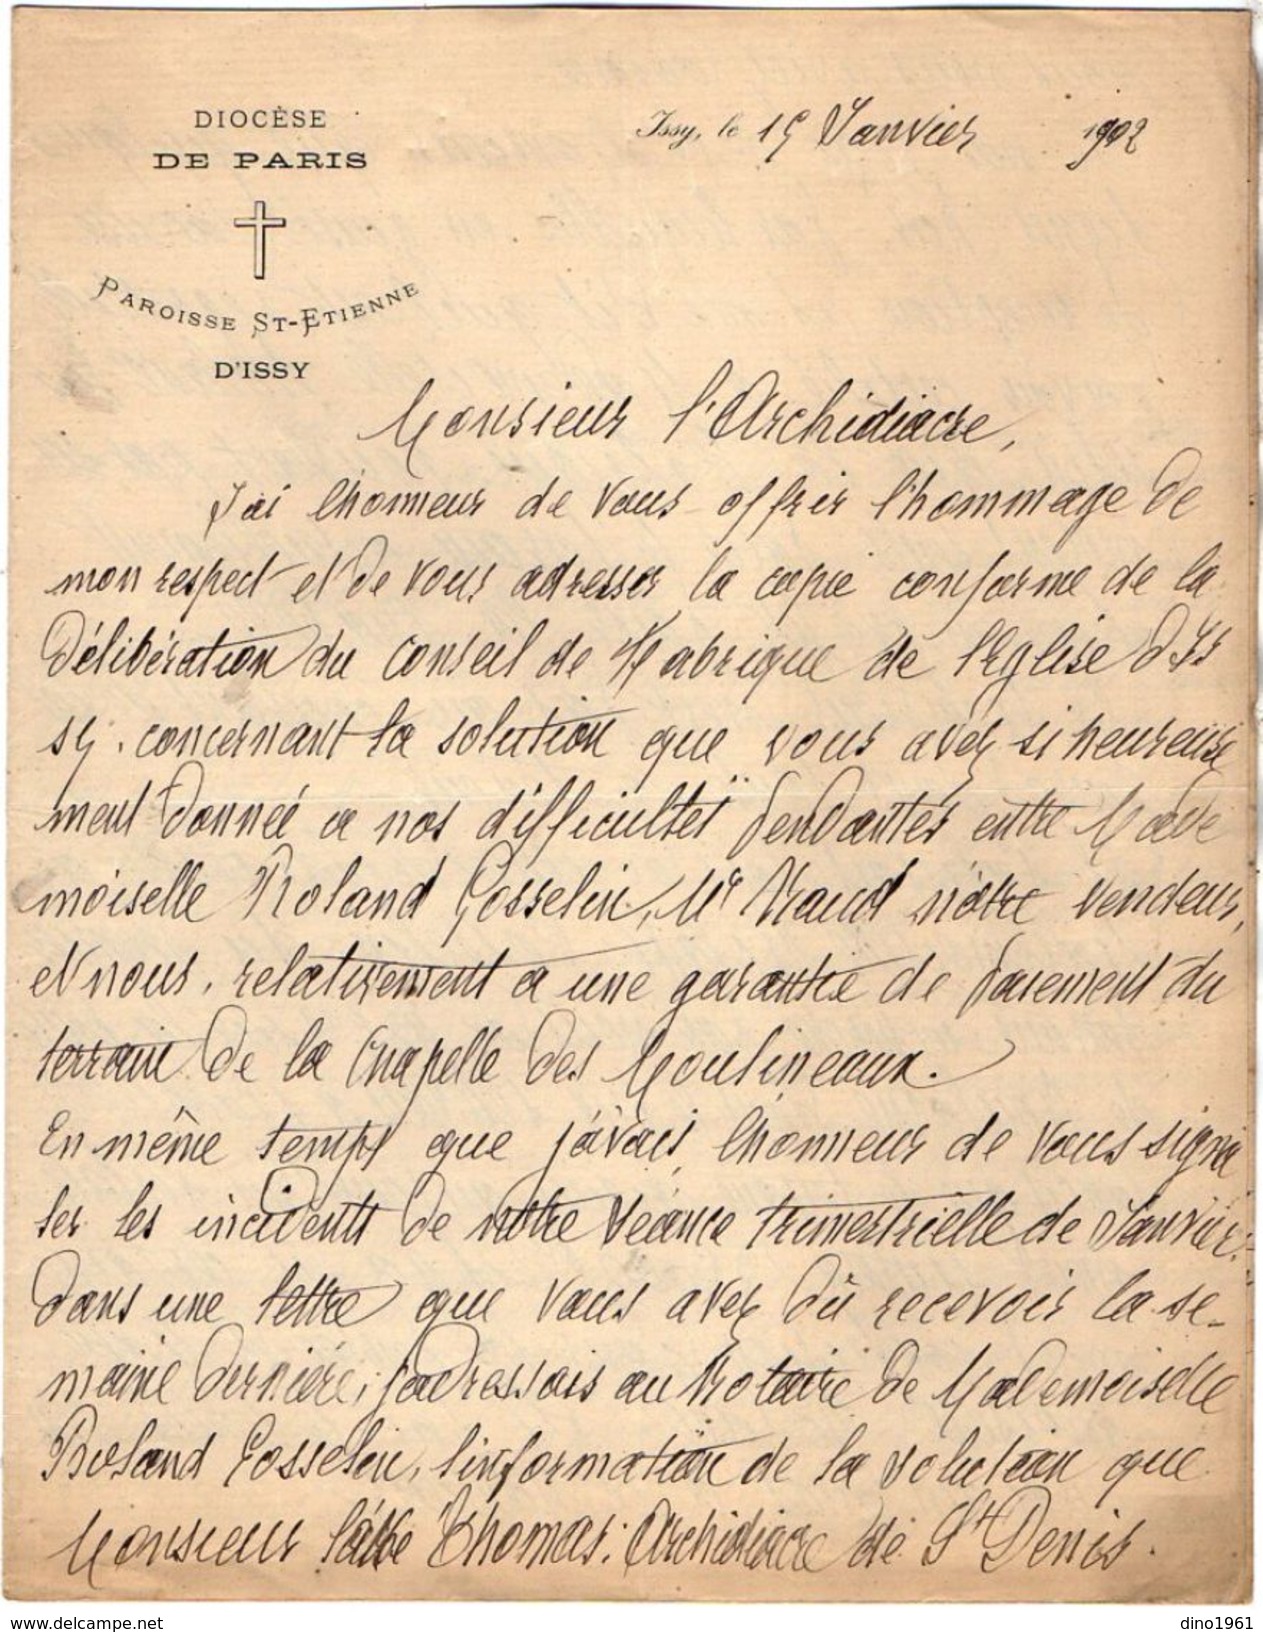 DIOCÈSE
DE PARIS
PAROISSE ST-ETIENNE
D'ISSY
Issy, le 15 Janvier 1902
Monsieur l'Archidiacre,
J'ai l'honneur de vous offrir l'hommage de
mon respect et de vous adresser la copie conforme de la
Délibération du Conseil de Fabrique de l'Eglise d'Is
sy. concernant la solution que vous avez si heureuse
ment donnée a nos difficultés pendantes entre Made
moiselle Roland Gosselin, Mr Naud nôtre vendeur,
et nous, relativement a une garantie de paiement du
terrain de la Chapelle des Moulineaux.
En même temps que j'avais l'honneur de vous signa
ler les incidents de nôtre séance trimestrielle de Janvier.
dans une lettre que vous avez dû recevoir la se-
maine dernière, j'adressais au Notaire de Mademoiselle
Roland Gosselin, l'information de la solution que
Monsieur l'abbé Thomas, Archidiacre de St Denis.
www.delcampe.net
dino1961